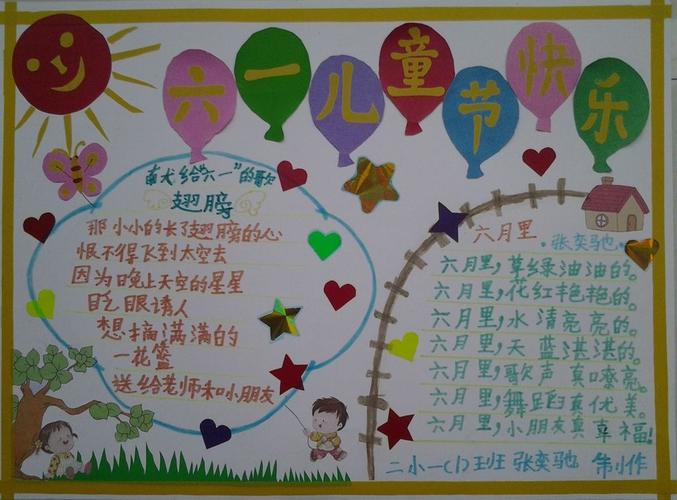 六一儿童节快乐
献给“六一”的歌
翅膀
那小小的长了翅膀的心
恨不得飞到太空去
因为晚上天空的星星
眨眼诱人
想摘满满的
一花篮
送给老师和小朋友
六月里
·张奕驰·
六月里,草绿油油的。
六月里,花红艳艳的。
六月里,水清亮亮的。
六月里,天蓝湛湛的。
六月里,歌声真嘹亮。
六月里,舞蹈真优美。
六月里,小朋友真幸福!
二小一(1)班 张奕驰 制作